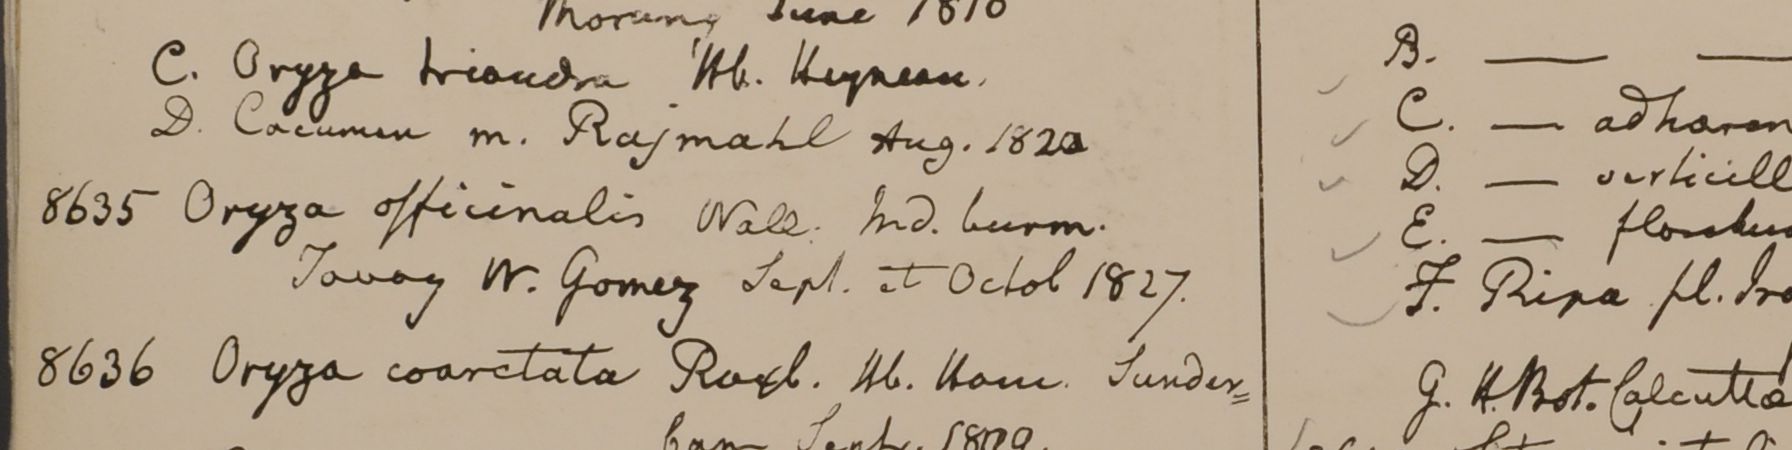 Morung June 1810
C. Oryza triandra Hb. Heynean.
D. Cacumen m. Rajmahl Aug. 1820
8635 Oryza officinalis Wall. Ind. burm.
Tavoy W. Gomez Sept. et Octob 1827.
8636 Oryza coarctata Roxb. Hb. Ham. Sunder=
ban Septr. 1809.
B. — —
C. — adhaeren
D. — verticill
E. —
F. Ripa fl. Ira
G. H. Bot. Calcutta